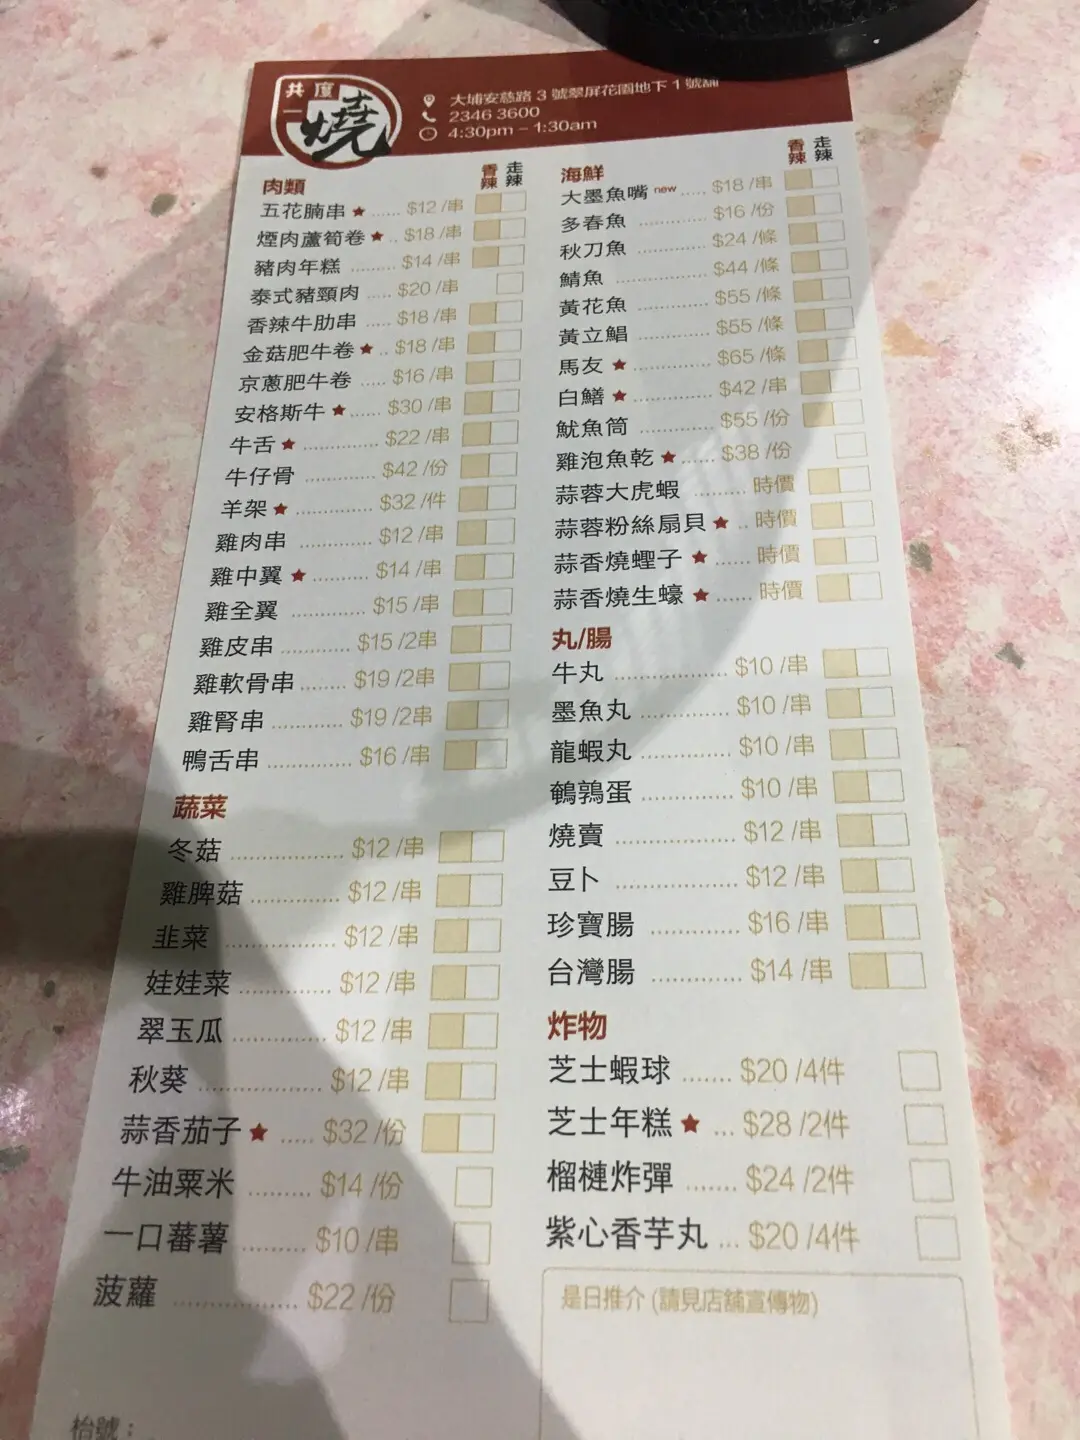 共度一燒
大埔安慈路 3 號翠屏花園地下 1 號舖
2346 3600
4:30pm – 1:30am
肉類 香辣 走辣
五花腩串★ ...... $12 /串
煙肉蘆筍卷★ .. $18 /串
豬肉年糕 ......... $14 /串
泰式豬頸肉 ..... $20 /串
香辣牛肋串 ..... $18 /串
金菇肥牛卷★ .. $18 /串
京蔥肥牛卷 ..... $16 /串
安格斯牛★ ...... $30 /串
牛舌★ ............. $22 /串
牛仔骨 ............ $42 /份
羊架★ ............. $32 /件
雞肉串 ............ $12 /串
雞中翼★ ......... $14 /串
雞全翼 ............ $15 /串
雞皮串 ............ $15 /2串
雞軟骨串 ....... $19 /2串
雞腎串 ............ $19 /2串
鴨舌串 .............. $16 /串
蔬菜
冬菇 .................. $12 /串
雞脾菇 .............. $12 /串
韭菜 .................. $12 /串
娃娃菜 .............. $12 /串
翠玉瓜 .............. $12 /串
秋葵 .................. $12 /串
蒜香茄子★ ..... $32 /份
牛油粟米 ......... $14 /份
一口蕃薯 ......... $10 /串
菠蘿 .................. $22 /份
枱號：
海鮮 香辣 走辣
大墨魚嘴 new ..... $18 /串
多春魚 ............ $16 /份
秋刀魚 ............ $24 /條
鯖魚 ................ $44 /條
黃花魚 ............ $55 /條
黃立鯧 ............ $55 /條
馬友★ ............. $65 /條
白鱔★ ............. $42 /串
魷魚筒 ............ $55 /份
雞泡魚乾★ ...... $38 /份
蒜蓉大虎蝦 ......... 時價
蒜蓉粉絲扇貝★ .. 時價
蒜香燒蟶子★ ...... 時價
蒜香燒生蠔★ ...... 時價
丸/腸
牛丸 .................. $10 /串
墨魚丸 .............. $10 /串
龍蝦丸 .............. $10 /串
鵪鶉蛋 .............. $10 /串
燒賣 .................. $12 /串
豆卜 .................. $12 /串
珍寶腸 ............. $16 /串
台灣腸 ............. $14 /串
炸物
芝士蝦球 ....... $20 /4件
芝士年糕★ ... $28 /2件
榴槤炸彈 ....... $24 /2件
紫心香芋丸 ... $20 /4件
是日推介 (請見店舖宣傳物)